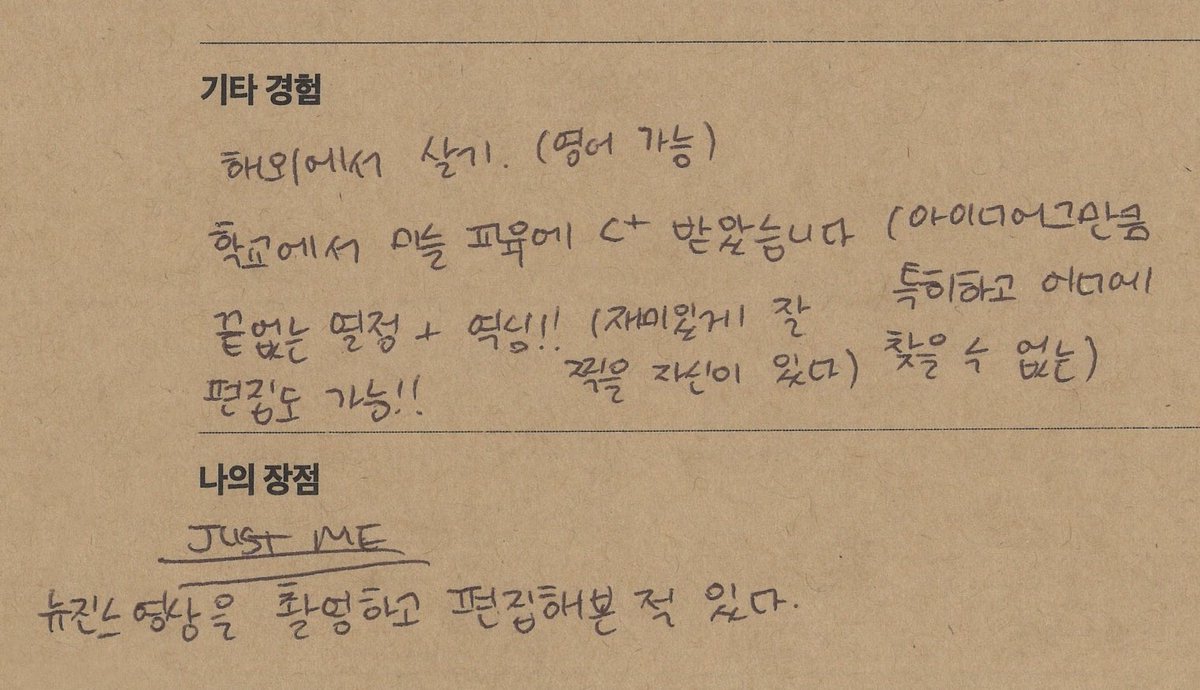 기타 경험
해외에서 살기. (영어 가능)
학교에서 미늘 피육에 C+ 받았습니다 (아이디어그만큼
특히하고 어디에
찾을 수 없는)
끝없는 열정 + 역심!! (재미있게 잘
찍을 자신이 있다)
편집도 가능!!
나의 장점
JUST ME
뉴진스 영상을 촬영하고 편집해본 적 있다.